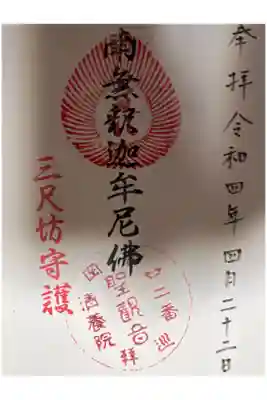 奉拝 令和四年四月二十二日
南無釈迦牟尼佛
三尺坊守護
二番
聖観音
清養院
拝